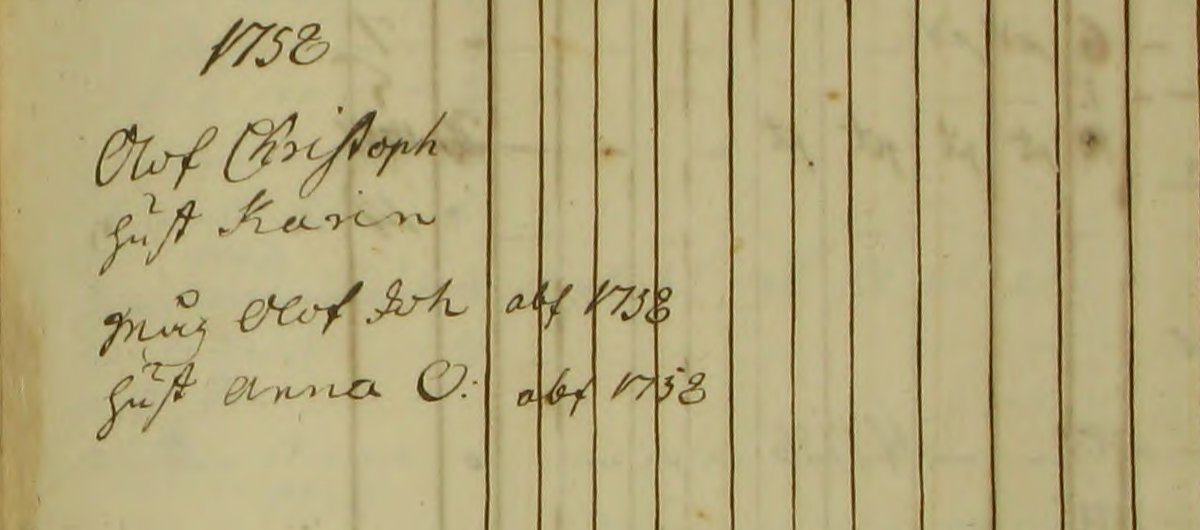 1758
Olof Christoph
hust Karin
Måg Olof Joh abf 1758
hust Anna O: abf 1758